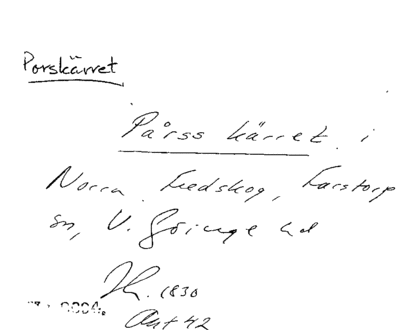 Porskärret
Pårss kärret i
Norra Fedskog, Farstorp
sn, V. Göinge hd
1830
Akt 42